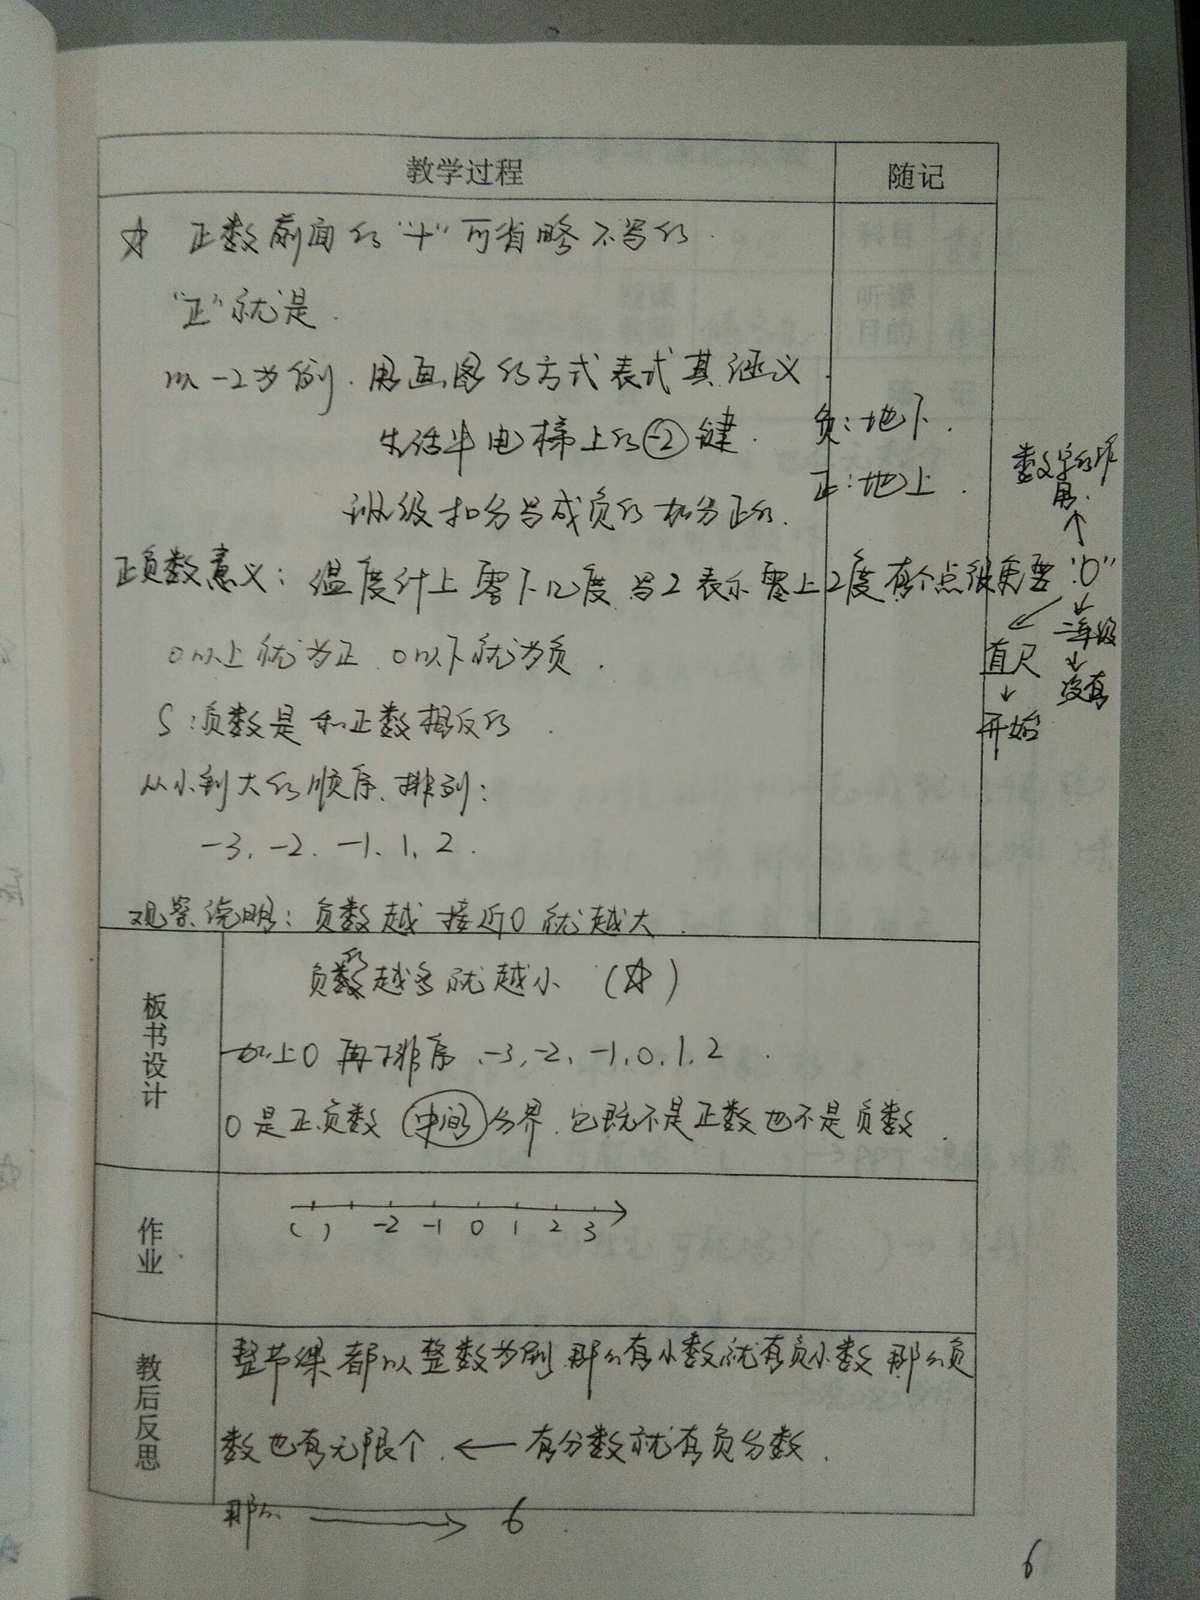 教学过程
随记
☆ 正数前面的"+"可省略不写的.
"正"就是.
以-2为例.用画图的方式表式其涵义.
生活中电梯上的-2键.
负:地下.
正:地上.
班级扣分写成负的 加分正的.
正负数意义:温度计上零下几度 写2表示零上2度 有个点很重要"0"
数字的作用.
二年级
没有
直尺
开始
0以上就为正 0以下就为负.
S:负数是和正数相反的.
从小到大的顺序.排列:
-3、-2、-1、1、2.
观察说明:负数越接近0就越大.
板书设计
负数越多就越小(☆)
加上0再排序、-3,-2、-1,0,1,2.
0是正负数中间分界.它既不是正数也不是负数.
作业
( ) -2 -1 0 1 2 3
教后反思
整节课都以整数为例 那么有小数就有负小数 那么负
数也有无限个. ← 有分数就有负分数.
那么 → 6
6